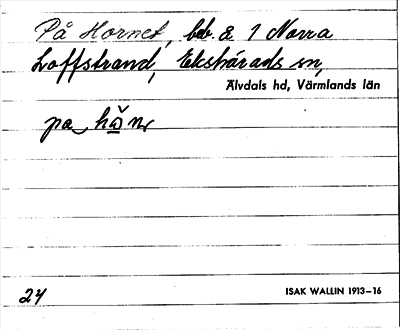 På Hornet, beb. å 1 Norra
Loffstrand, Ekshärads sn,
Älvdals hd, Värmlands län
pa hå̀ṇ
24
ISAK WALLIN 1913–16